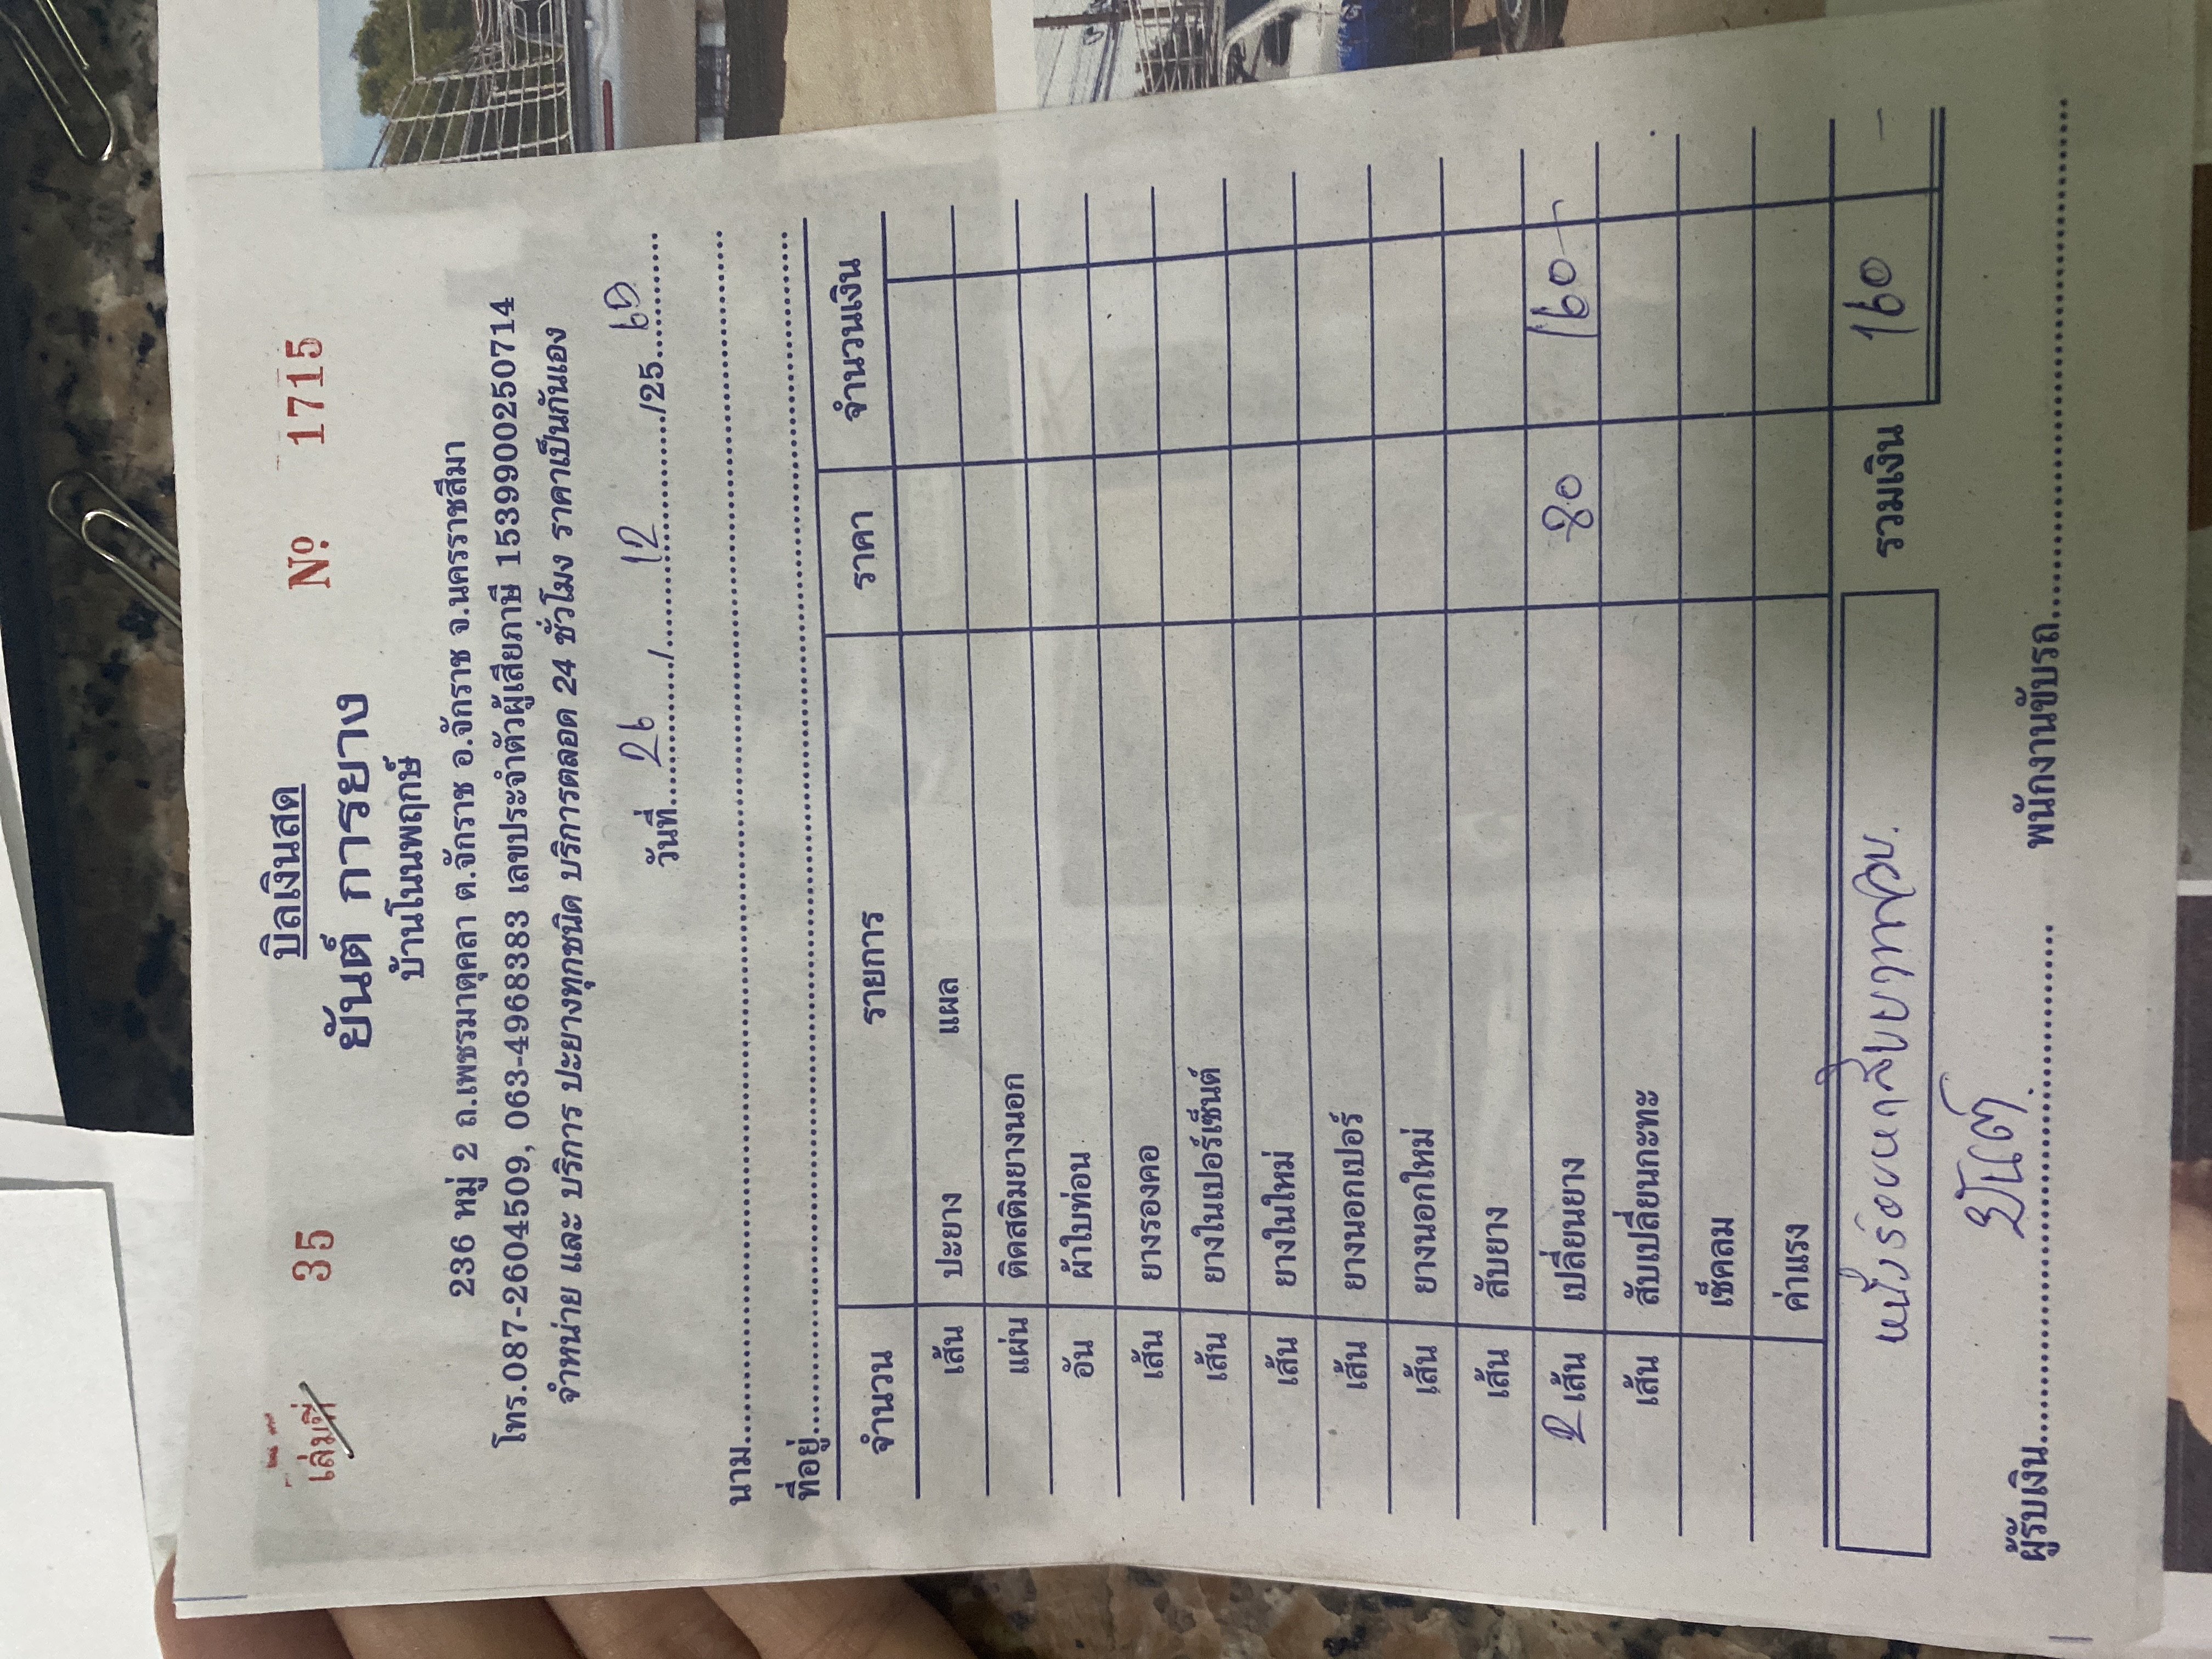 บิลเงินสด
เล่มที่ 35 Nº 1715
ยันต์ การยาง
บ้านโนนพฤกษ์
236 หมู่ 2 ถ.เพชรมาตุคลา ต.จักราช อ.จักราช จ.นครราชสีมา
โทร.087-2604509, 063-4968383 เลขประจำตัวผู้เสียภาษี 1539900250714
จำหน่าย และ บริการ ปะยางทุกชนิด บริการตลอด 24 ชั่วโมง ราคาเป็นกันเอง
วันที่ 26 / 12 /25
นาม
ที่อยู่
จำนวน รายการ ราคา จำนวนเงิน
เส้น ปะยาง แผล
แผ่น ติดสติมยางนอก
อัน ผ้าใบท่อน
เส้น ยางรองคอ
เส้น ยางในเปอร์เซ็นต์
เส้น ยางในใหม่
เส้น ยางนอกเปอร์
เส้น ยางนอกใหม่
เส้น สับยาง
2 เส้น เปลี่ยนยาง 80 160 -
เส้น สับเปลี่ยนกะทะ
เช็คลม
ค่าแรง
หนึ่งร้อยหกสิบบาทถ้วน. รวมเงิน 160 -
ผู้รับเงิน ยันต์ พนักงานขับรถ